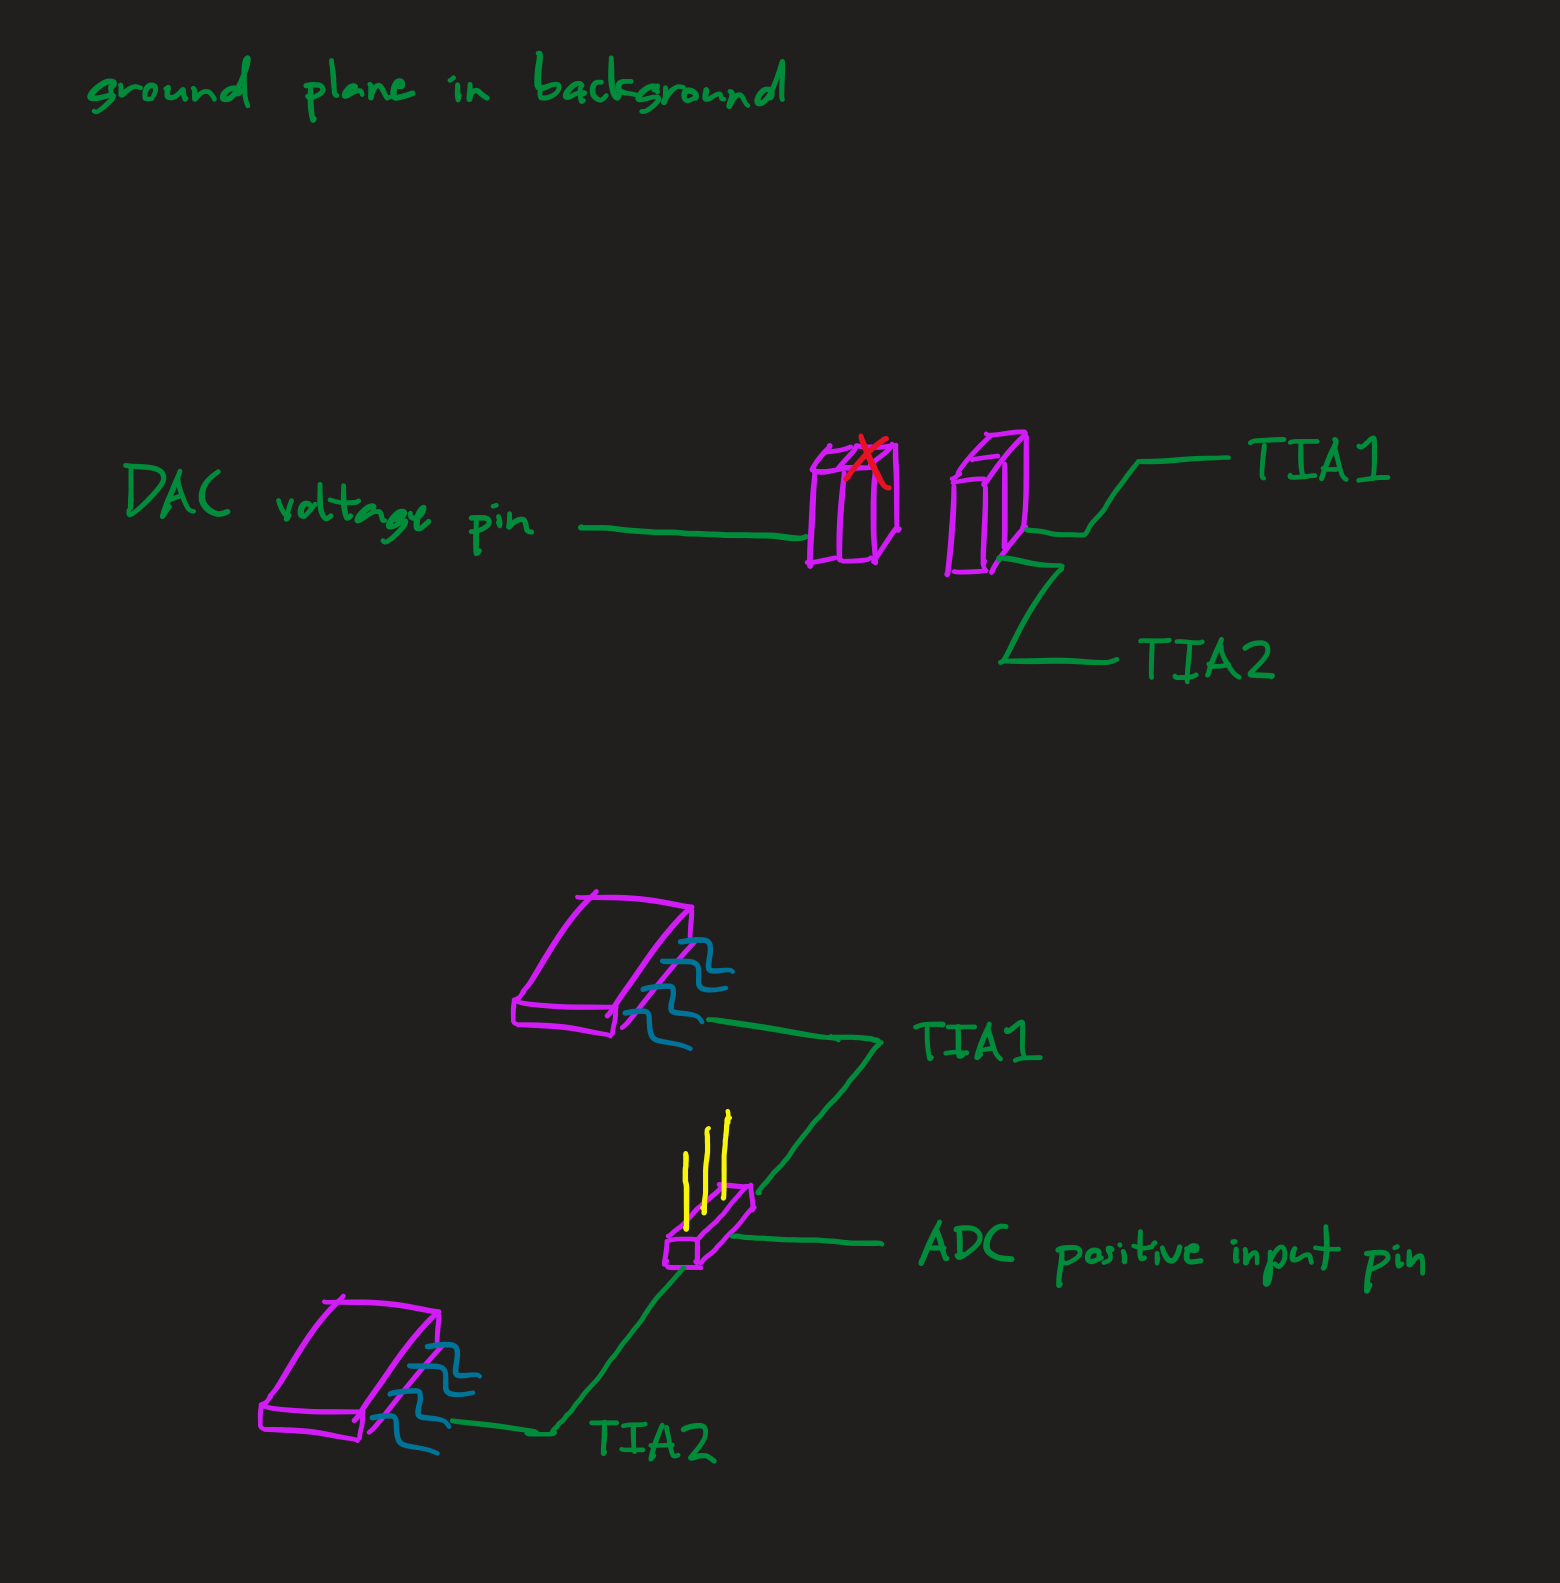 ground plane in background
TIA1
DAC voltage pin
TIA2
TIA1
ADC positive input pin
TIA2